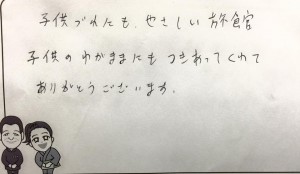 子供づれにも、やさしい旅館
子供のわがままにもつきあってくれて
ありがとうございます。